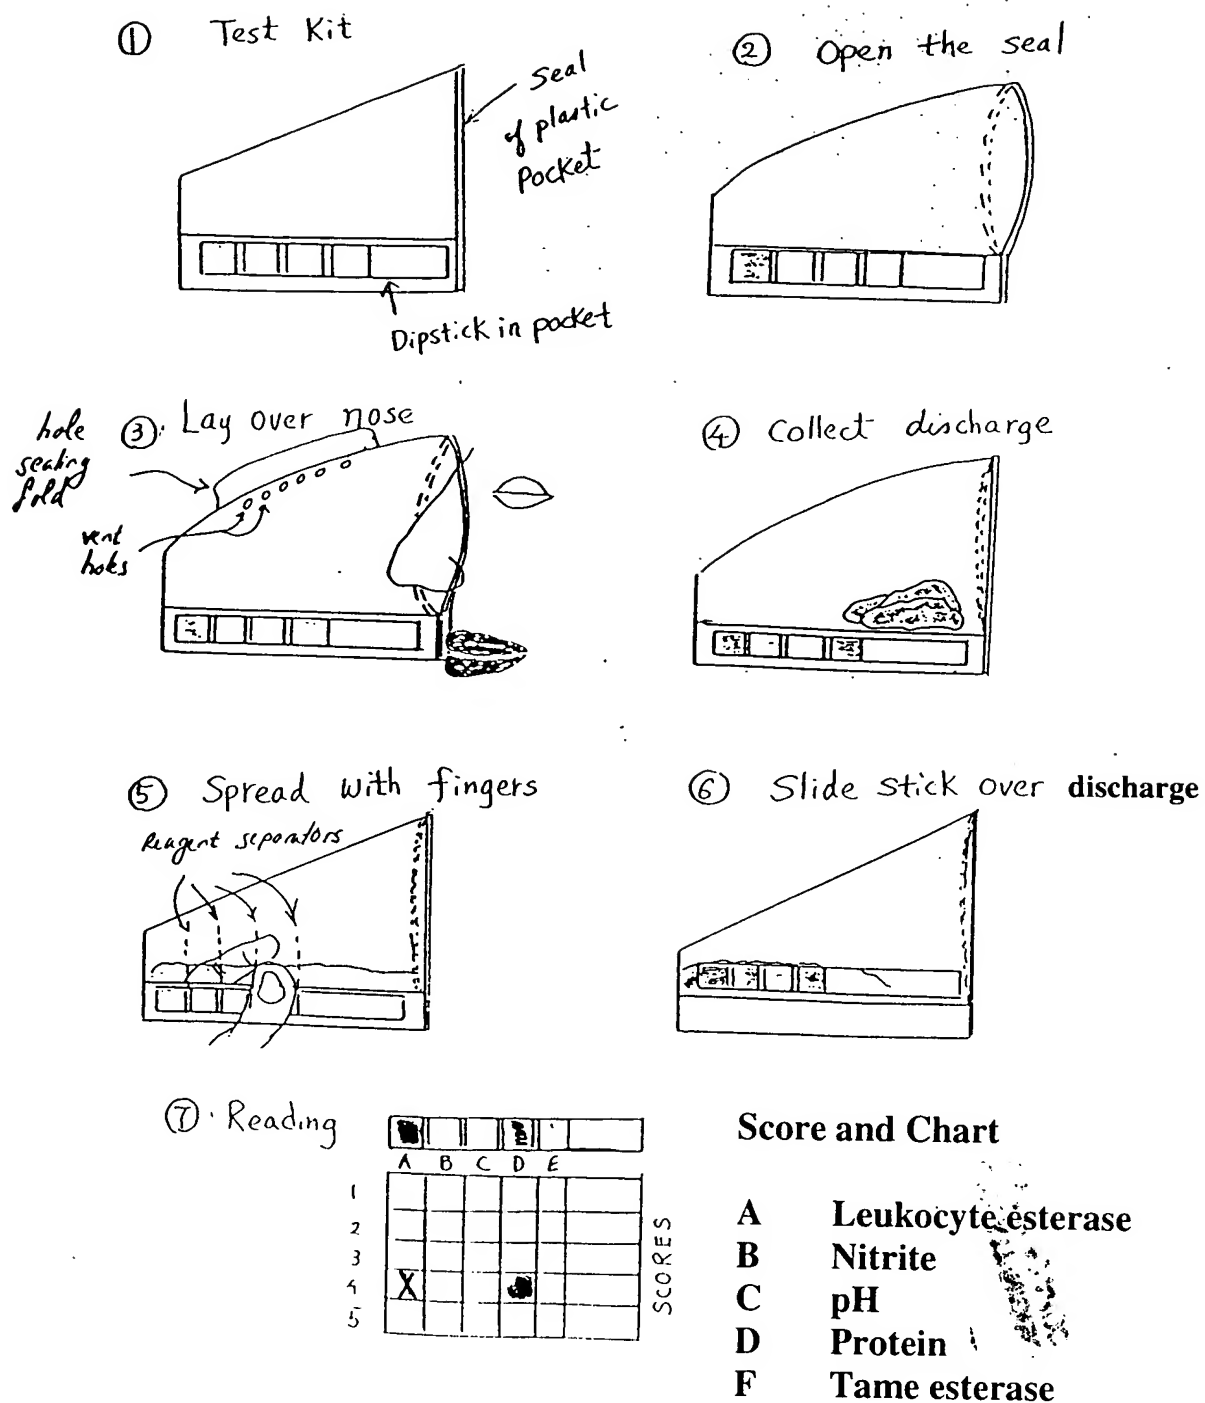 ① Test Kit
seal
of plastic
pocket
Dipstick in pocket
② Open the seal
③ Lay over nose
hole
sealing
fold
vent
holes
④ Collect discharge
⑤ Spread with fingers
Reagent separators
⑥ Slide stick over discharge
⑦ Reading
A B C D E
1
2
3
4
X
5
SCORES
Score and Chart
A Leukocyte esterase
B Nitrite
C pH
D Protein
F Tame esterase